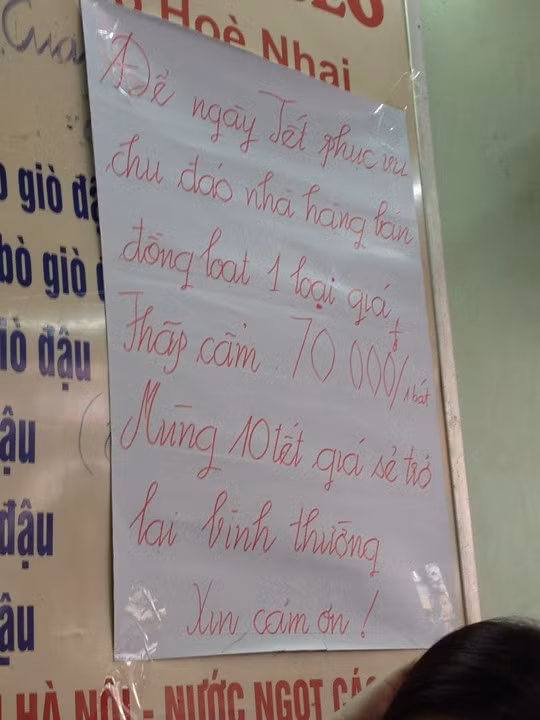 Hoè Nhai
Để ngày Tết phục vụ
chu đáo nhà hàng bán
đồng loạt 1 loại giá
Thập cẩm 70 000đ/1 bát
Mùng 10 tết giá sẽ trở
lại bình thường
Xin cảm ơn!
giò
bò giò
giò đậu
đậu
đậu
đậu
HÀ NỘI - NƯỚC NGỌT CÁC